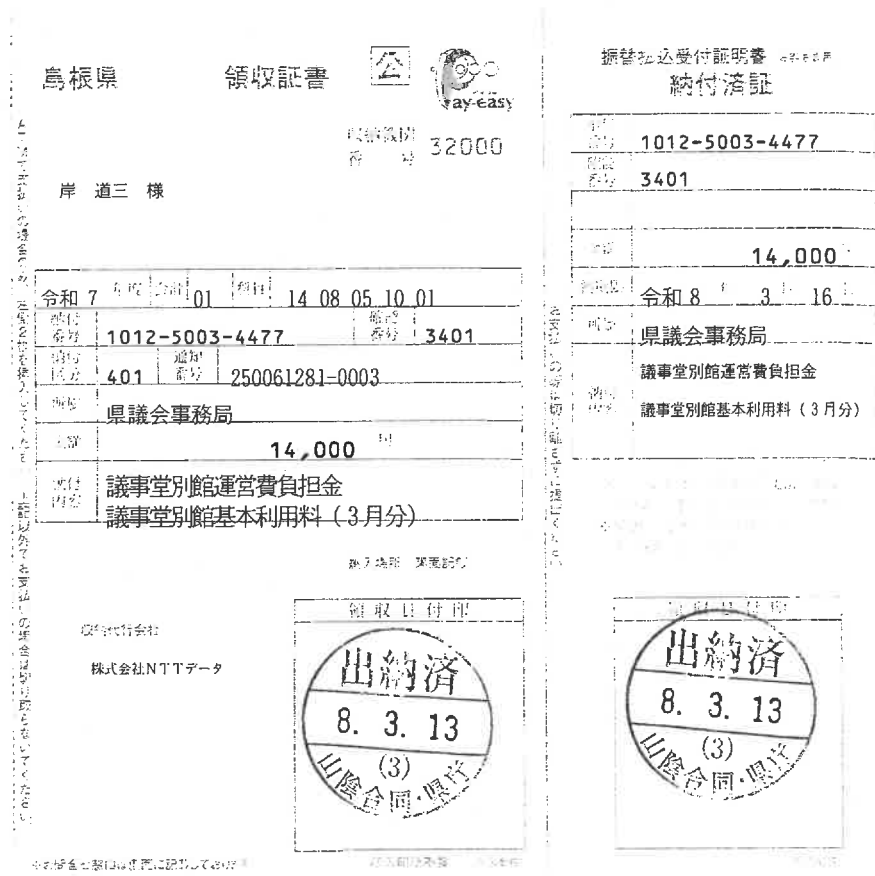 島根県 領収証書 公
Pay-easy
収納機関
番号 32000
岸 道三 様
令和 7 年度 会計 01 科目 14 08 05 10 01
納付
番号 1012-5003-4477 確認
番号 3401
納付
区分 401 通知
番号 250061281-0003
所属 県議会事務局
金額 14,000 円
納付
内容 議事堂別館運営費負担金
議事堂別館基本利用料(3月分)
納入場所 裏面記載
収納代行会社
株式会社NTTデータ
領収日付印
出納済
8. 3. 13
(3)
山陰合同・県庁
振替払込受付証明書
納付済証
納付
番号 1012-5003-4477
確認
番号 3401
金額 14,000 円
納期限 令和 8 年 3 月 16 日
所属 県議会事務局
納付
内容 議事堂別館運営費負担金
議事堂別館基本利用料(3月分)
領収日付印
出納済
8. 3. 13
(3)
山陰合同・県庁